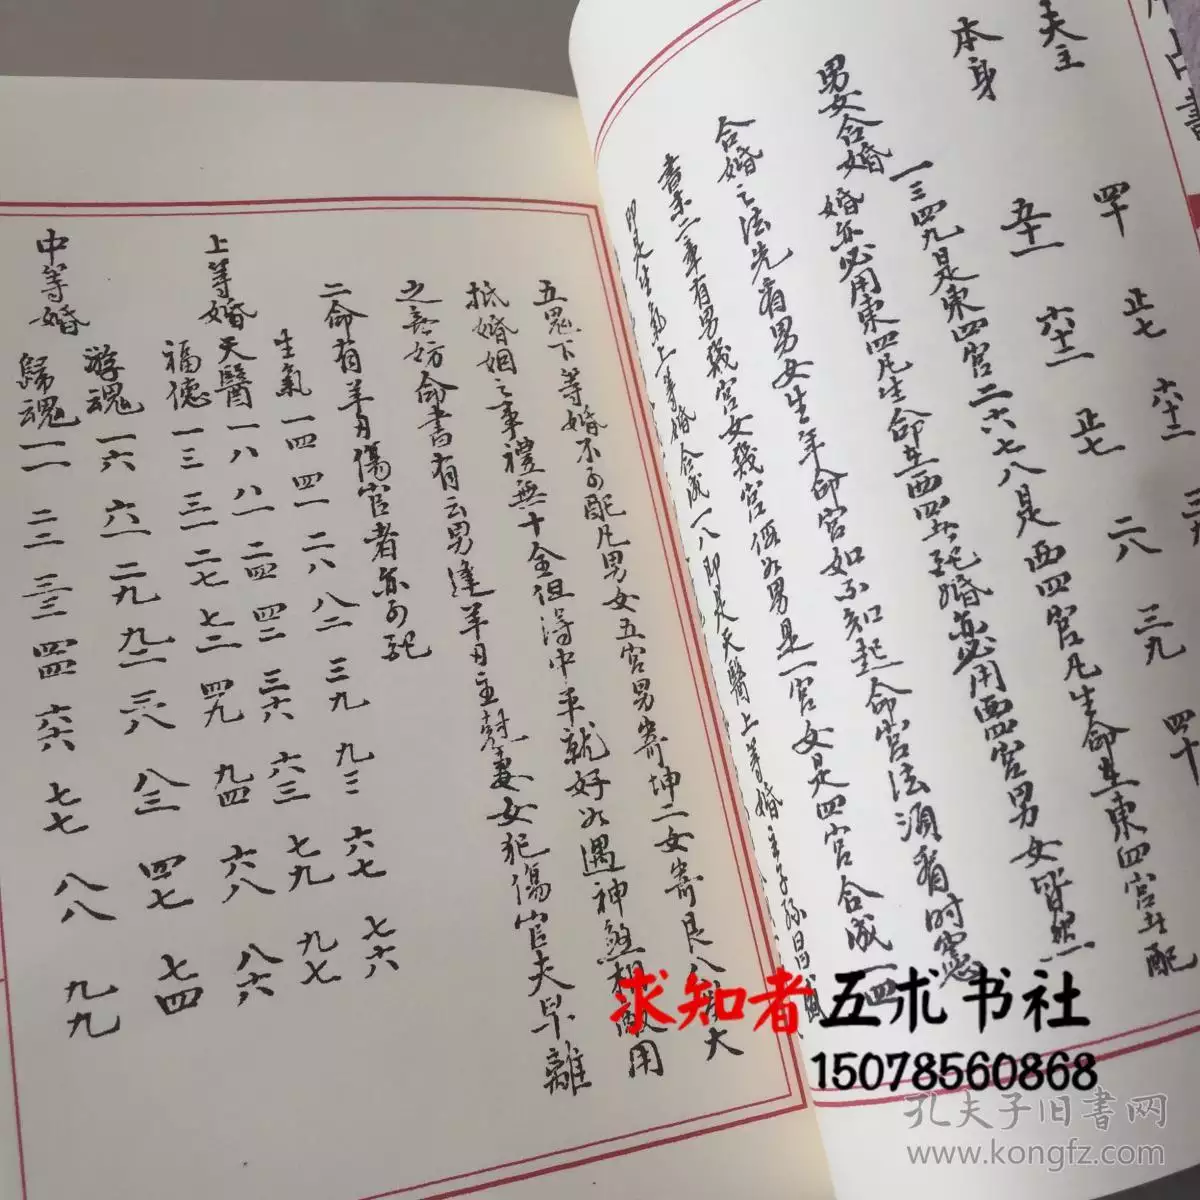 占書
夫主 四十 正七 六十二 三九
本身 五十一 六十二 正七 二八 三九 四十
男女合婚 一三四九是東四宮二六七八是西四宮凡生命生東四宮者配
婚亦必用東四凡生命生西四者配婚亦必用西四宮男女皆然
合婚之法先有男女生年命宮如不知起命宮法須看時憲
書末二章有男幾宮女幾宮假如男是一宮女是四宮合成一四
即是生氣上等婚合成一八即是天醫上等婚主子孫昌盛
五鬼下等婚不可配凡男女五宮男寄坤二女寄艮八
大
抵婚姻之事禮無十全但得中平就好如遇神煞相敵用
之無妨命書有云男逢羊刃主尅妻女犯傷官夫早離
二命有羊刃傷官者亦可配
生氣 一四 四一 二八 八二 三九 九三 六七 七六
上等婚 天醫 一八 八一 二四 四二 三六 六三 七九 九七
福德 一三 三一 二七 七二 四九 九四 六八 八六
中等婚 游魂 一六 六一 二九 九二 三八 八三 四七 七四
歸魂 一一 二二 三三 四四 六六 七七 八八 九九
求知者 五术书社
15078560868
孔夫子旧书网
www.kongfz.com